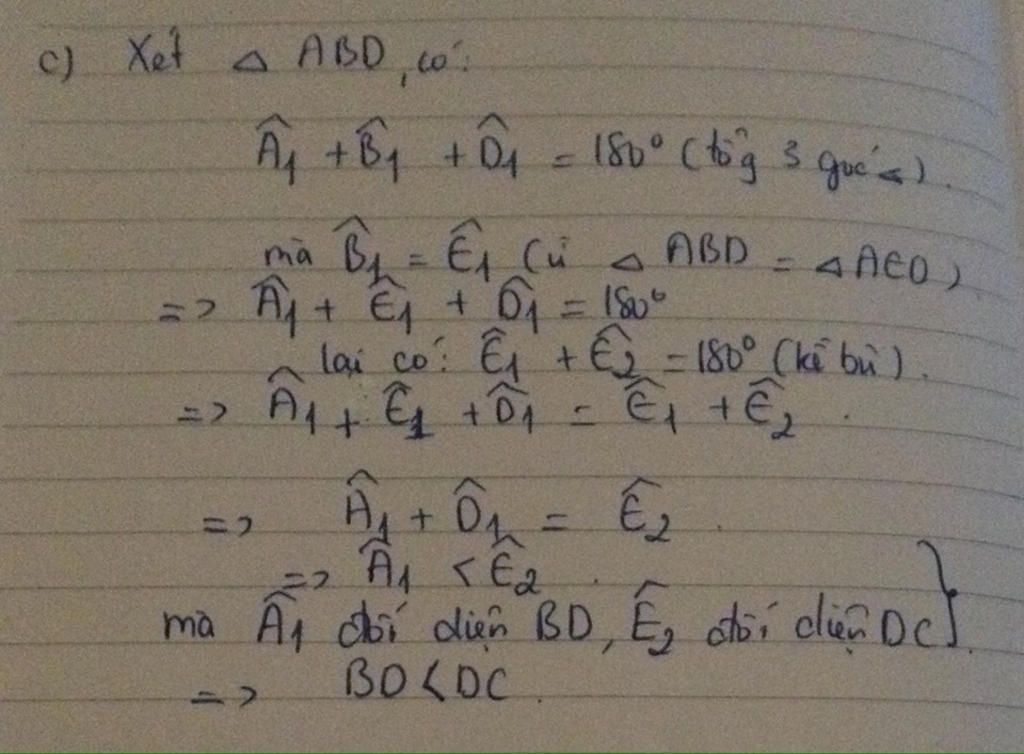 c) Xét △ ABD, có:
Â₁ + B̂₁ + D̂₁ = 180° (tổg 3 góc △).
mà B̂₁ = Ê₁ (vì △ ABD = △AED)
=> Â₁ + Ê₁ + D̂₁ = 180°
lại có: Ê₁ + Ê₂ = 180° (kề bù).
=> Â₁ + Ê₁ + D̂₁ = Ê₁ + Ê₂.
=> Â₁ + D̂₁ = Ê₂.
=> Â₁ < Ê₂.
mà Â₁ đối diện BD, Ê₂ đối diện DC }
=> BD < DC.